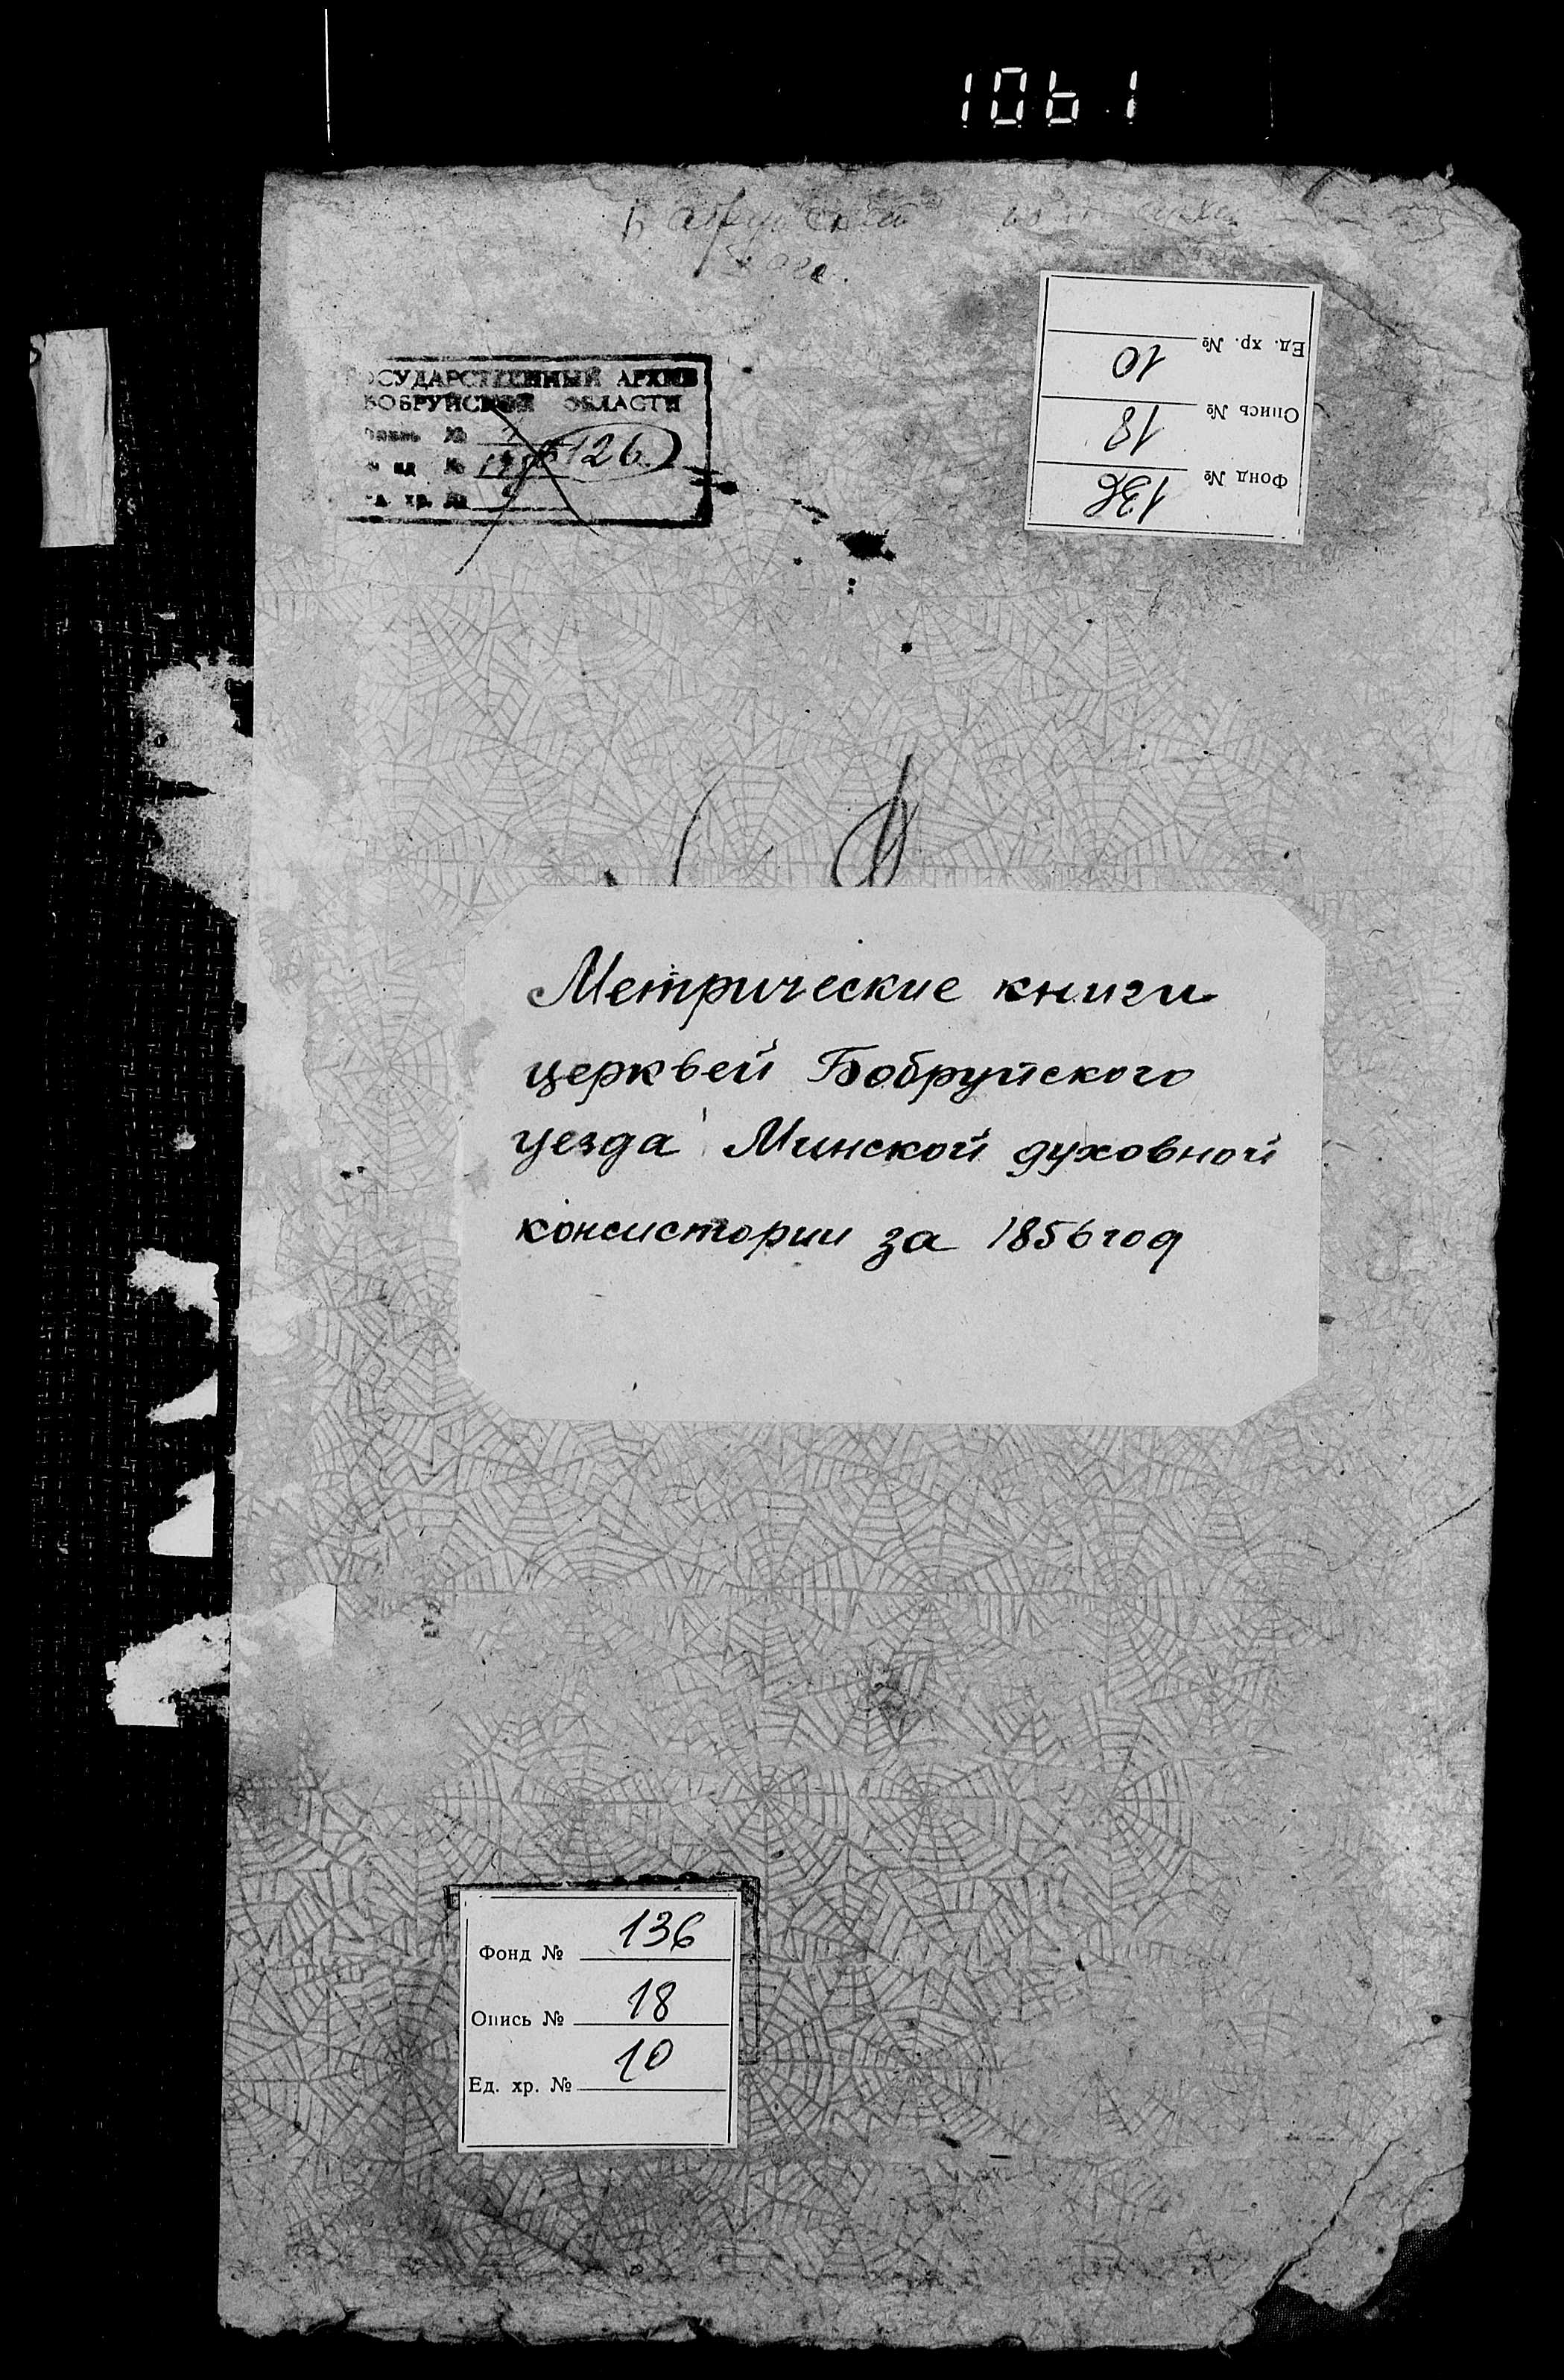 1061
ГОСУДАРСТВЕННЫЙ АРХИВ
БОБРУЙСКОЙ ОБЛАСТИ
№
126
№
хр. №
Ед. хр. №
10
Опись №
18
Фонд №
136
Метрические книги
церквей Бобруйского
уезда Минской духовной
консистории за 1856 год
Фонд № 136
Опись № 18
Ед. хр. № 10